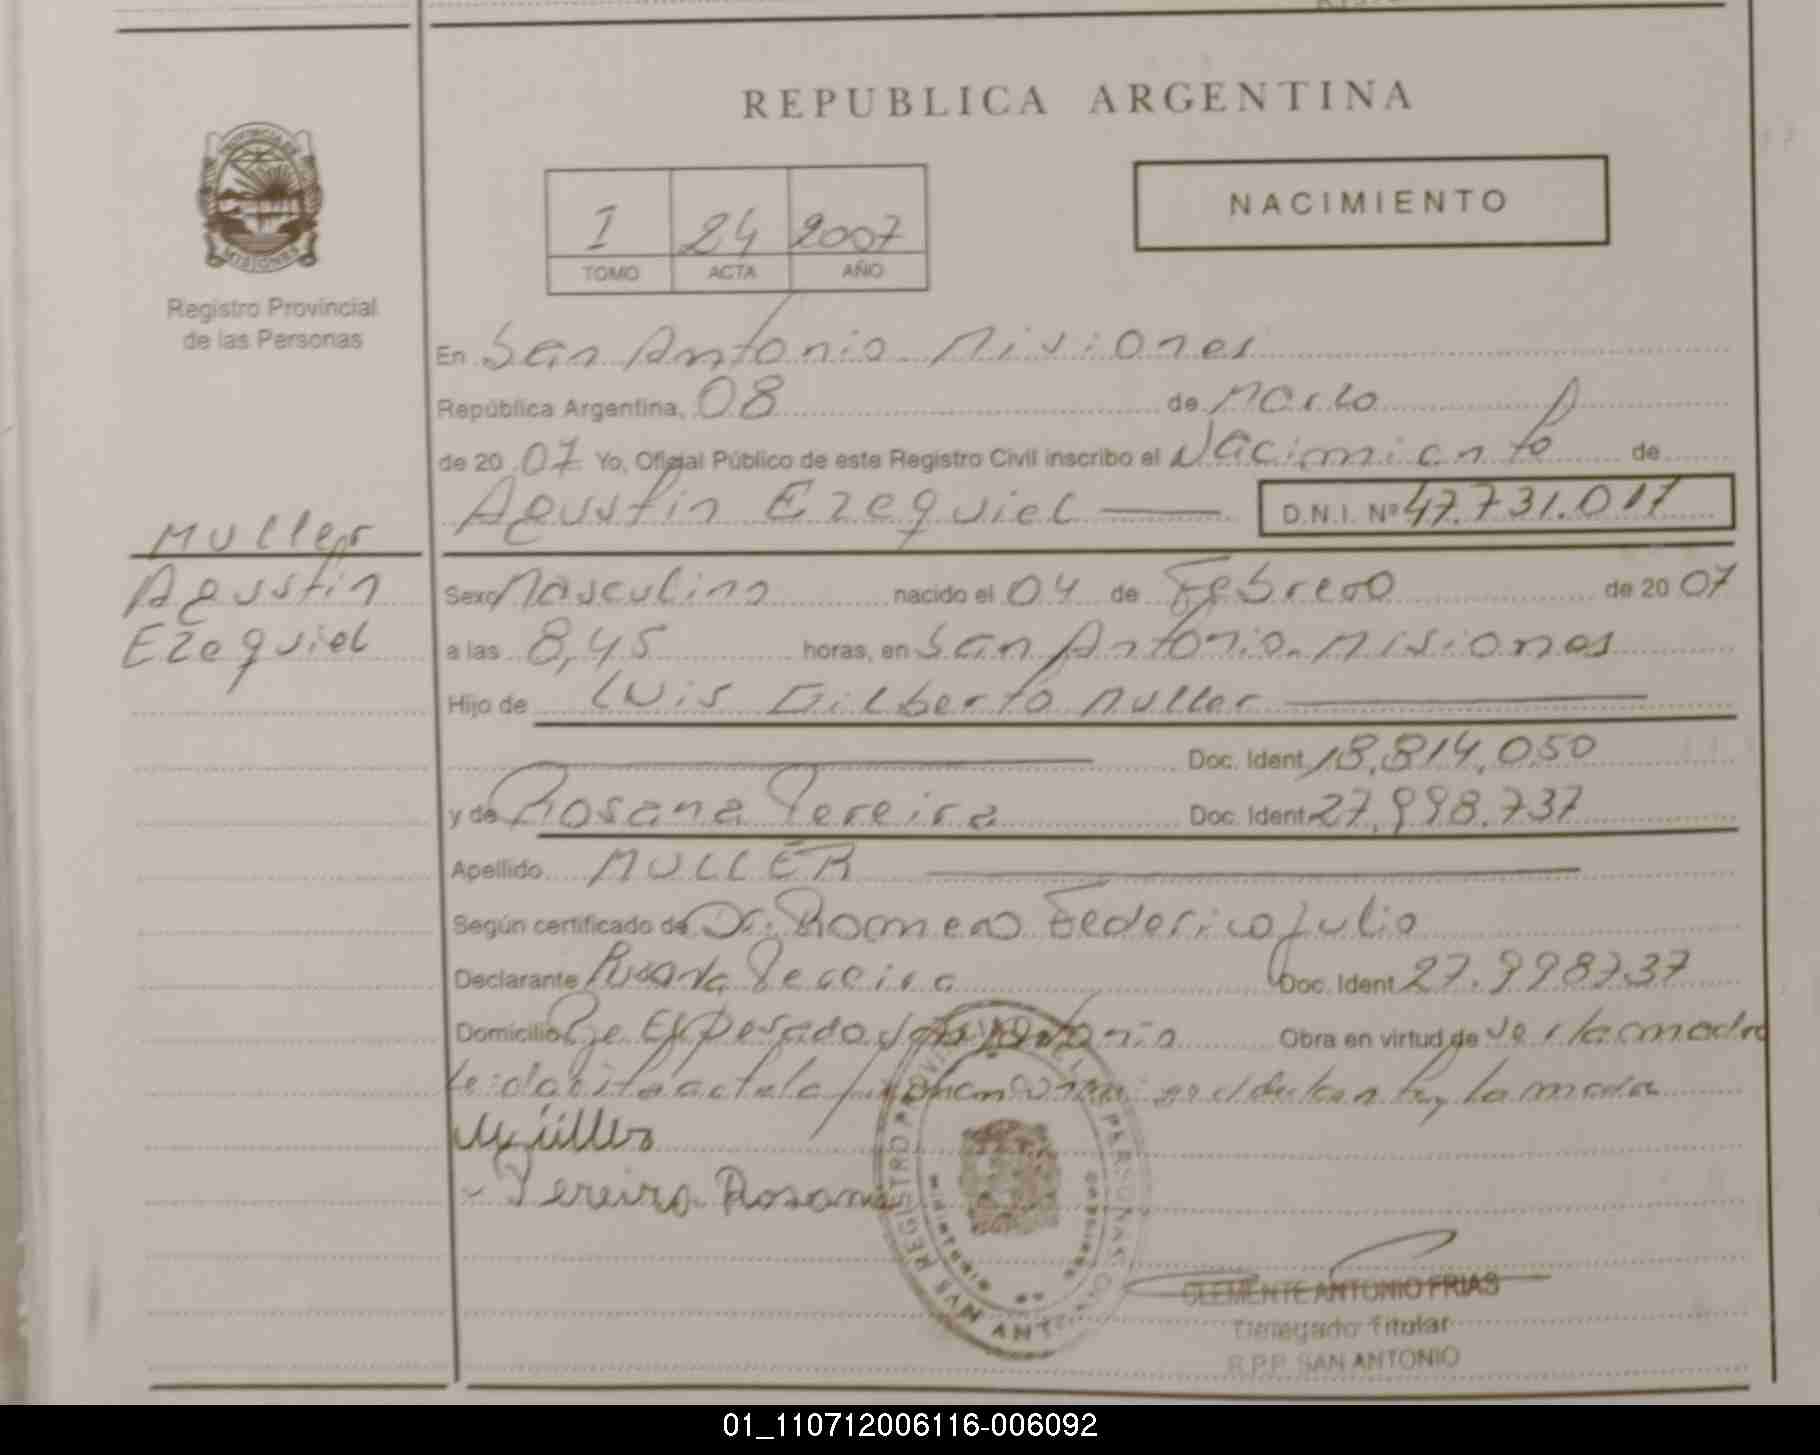 REPUBLICA ARGENTINA
PROVINCIA DE
MISIONES
Registro Provincial
de las Personas
NACIMIENTO
I 24 2007
TOMO ACTA AÑO
En San Antonio Misiones
República Argentina, 08 de Marzo
de 20 07 Yo, Oficial Público de este Registro Civil inscribo el Nacimiento de
Agustin Ezequiel D.N.I. Nº 47.731.017
Muller
Agustin
Ezequiel
Sexo Masculino nacido el 04 de Febrero de 20 07
a las 8,45 horas, en San Antonio. Misiones
Hijo de Luis Gilberto Muller
Doc. Ident. 18.814.050
y de Rosana Pereira Doc. Ident. 27.998.737
Apellido MULLER
Según certificado de Dr. Romero Federico Julio
Declarante Rosana Pereira Doc. Ident. 27.998737
Domicilio Pje El Pesado San Antonio Obra en virtud de ser la madre
leida esta acta la firman y la madre
Müller
- Pereira Rosana
REGISTRO PERSONAS
CLEMENTE ANTONIO FRIAS
Delegado Titular
R.P.P. SAN ANTONIO
01_110712006116-006092